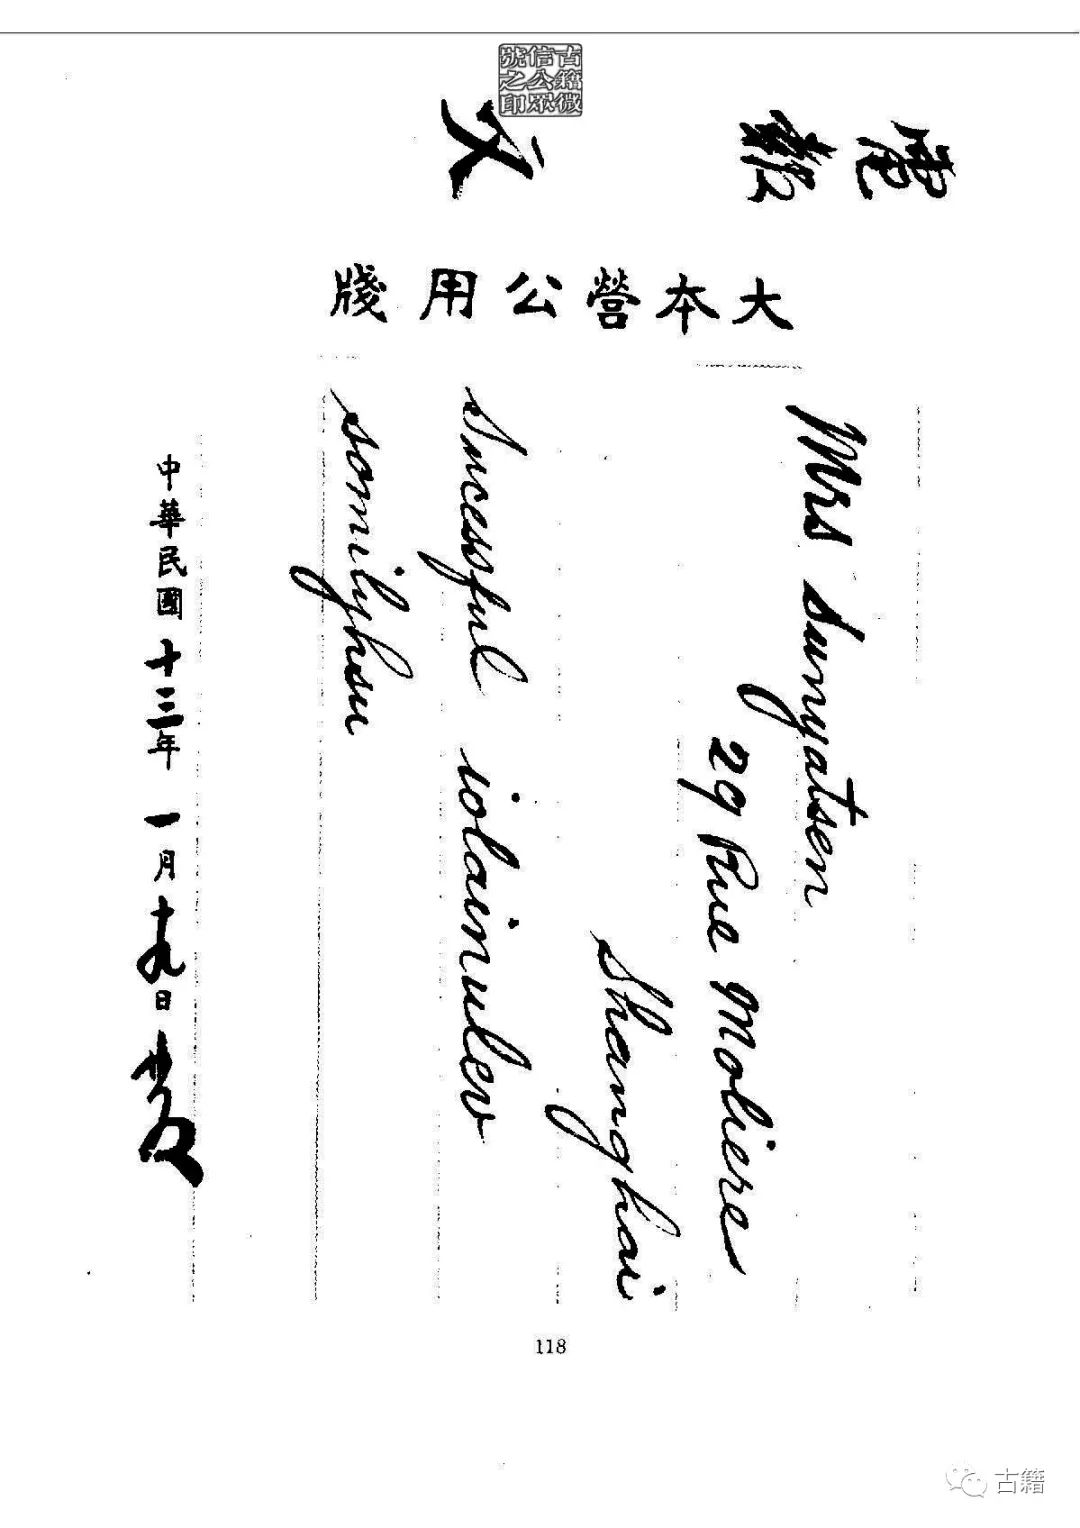 古籍微
信公眾
號之印
電報
文
大本營公用牋
Mrs Sunyatsen
29 Rue Moliere
Shanghai
Sucessful iolainulev
somilyhsu
中華民國十三年一月十九日
118
古籍